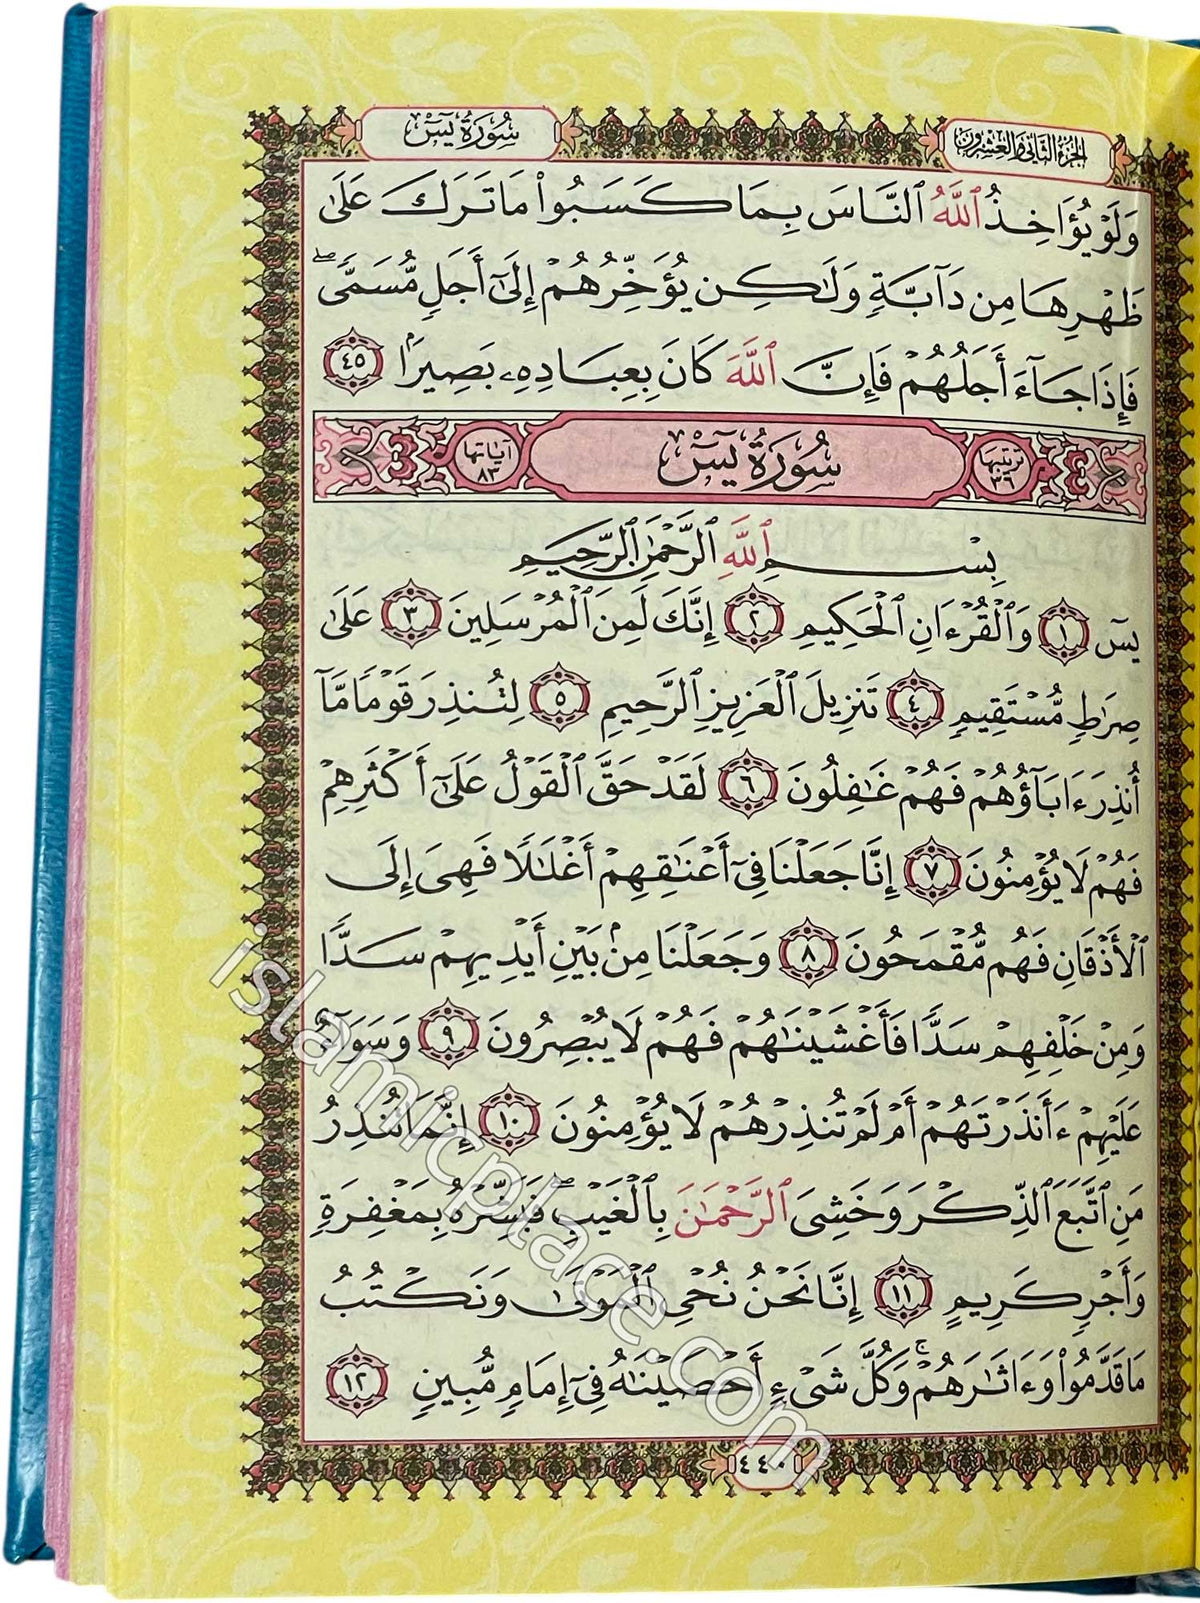 الجزء الثاني والعشرون
سُورَةُ يسٓ
وَلَوْ يُؤَاخِذُ ٱللَّهُ ٱلنَّاسَ بِمَا كَسَبُوا۟ مَا تَرَكَ عَلَىٰ
ظَهْرِهَا مِن دَآبَّةٍ وَلَـٰكِن يُؤَخِّرُهُمْ إِلَىٰٓ أَجَلٍ مُّسَمًّى ۖ
فَإِذَا جَآءَ أَجَلُهُمْ فَإِنَّ ٱللَّهَ كَانَ بِعِبَادِهِۦ بَصِيرًۢا ٤٥
ترتيبها ٣٦
سُورَةُ يسٓ
آياتها ٨٣
بِسْمِ ٱللَّهِ ٱلرَّحْمَـٰنِ ٱلرَّحِيمِ
يسٓ ١ وَٱلْقُرْءَانِ ٱلْحَكِيمِ ٢ إِنَّكَ لَمِنَ ٱلْمُرْسَلِينَ ٣ عَلَىٰ
صِرَٰطٍ مُّسْتَقِيمٍ ٤ تَنزِيلَ ٱلْعَزِيزِ ٱلرَّحِيمِ ٥ لِتُنذِرَ قَوْمًا مَّآ
أُنذِرَ ءَابَآؤُهُمْ فَهُمْ غَـٰفِلُونَ ٦ لَقَدْ حَقَّ ٱلْقَوْلُ عَلَىٰٓ أَكْثَرِهِمْ
فَهُمْ لَا يُؤْمِنُونَ ٧ إِنَّا جَعَلْنَا فِىٓ أَعْنَـٰقِهِمْ أَغْلَـٰلًا فَهِىَ إِلَى
ٱلْأَذْقَانِ فَهُم مُّقْمَحُونَ ٨ وَجَعَلْنَا مِنۢ بَيْنِ أَيْدِيهِمْ سَدًّا
وَمِنْ خَلْفِهِمْ سَدًّا فَأَغْشَيْنَـٰهُمْ فَهُمْ لَا يُبْصِرُونَ ٩ وَسَوَآءٌ
عَلَيْهِمْ ءَأَنذَرْتَهُمْ أَمْ لَمْ تُنذِرْهُمْ لَا يُؤْمِنُونَ ١٠ إِنَّمَا تُنذِرُ
مَنِ ٱتَّبَعَ ٱلذِّكْرَ وَخَشِىَ ٱلرَّحْمَـٰنَ بِٱلْغَيْبِ ۖ فَبَشِّرْهُ بِمَغْفِرَةٍ
وَأَجْرٍ كَرِيمٍ ١١ إِنَّا نَحْنُ نُحْىِ ٱلْمَوْتَىٰ وَنَكْتُبُ
مَا قَدَّمُوا۟ وَءَاثَـٰرَهُمْ ۚ وَكُلَّ شَىْءٍ أَحْصَيْنَـٰهُ فِىٓ إِمَامٍ مُّبِينٍ ١٢
٤٤٠
islamicplace.com